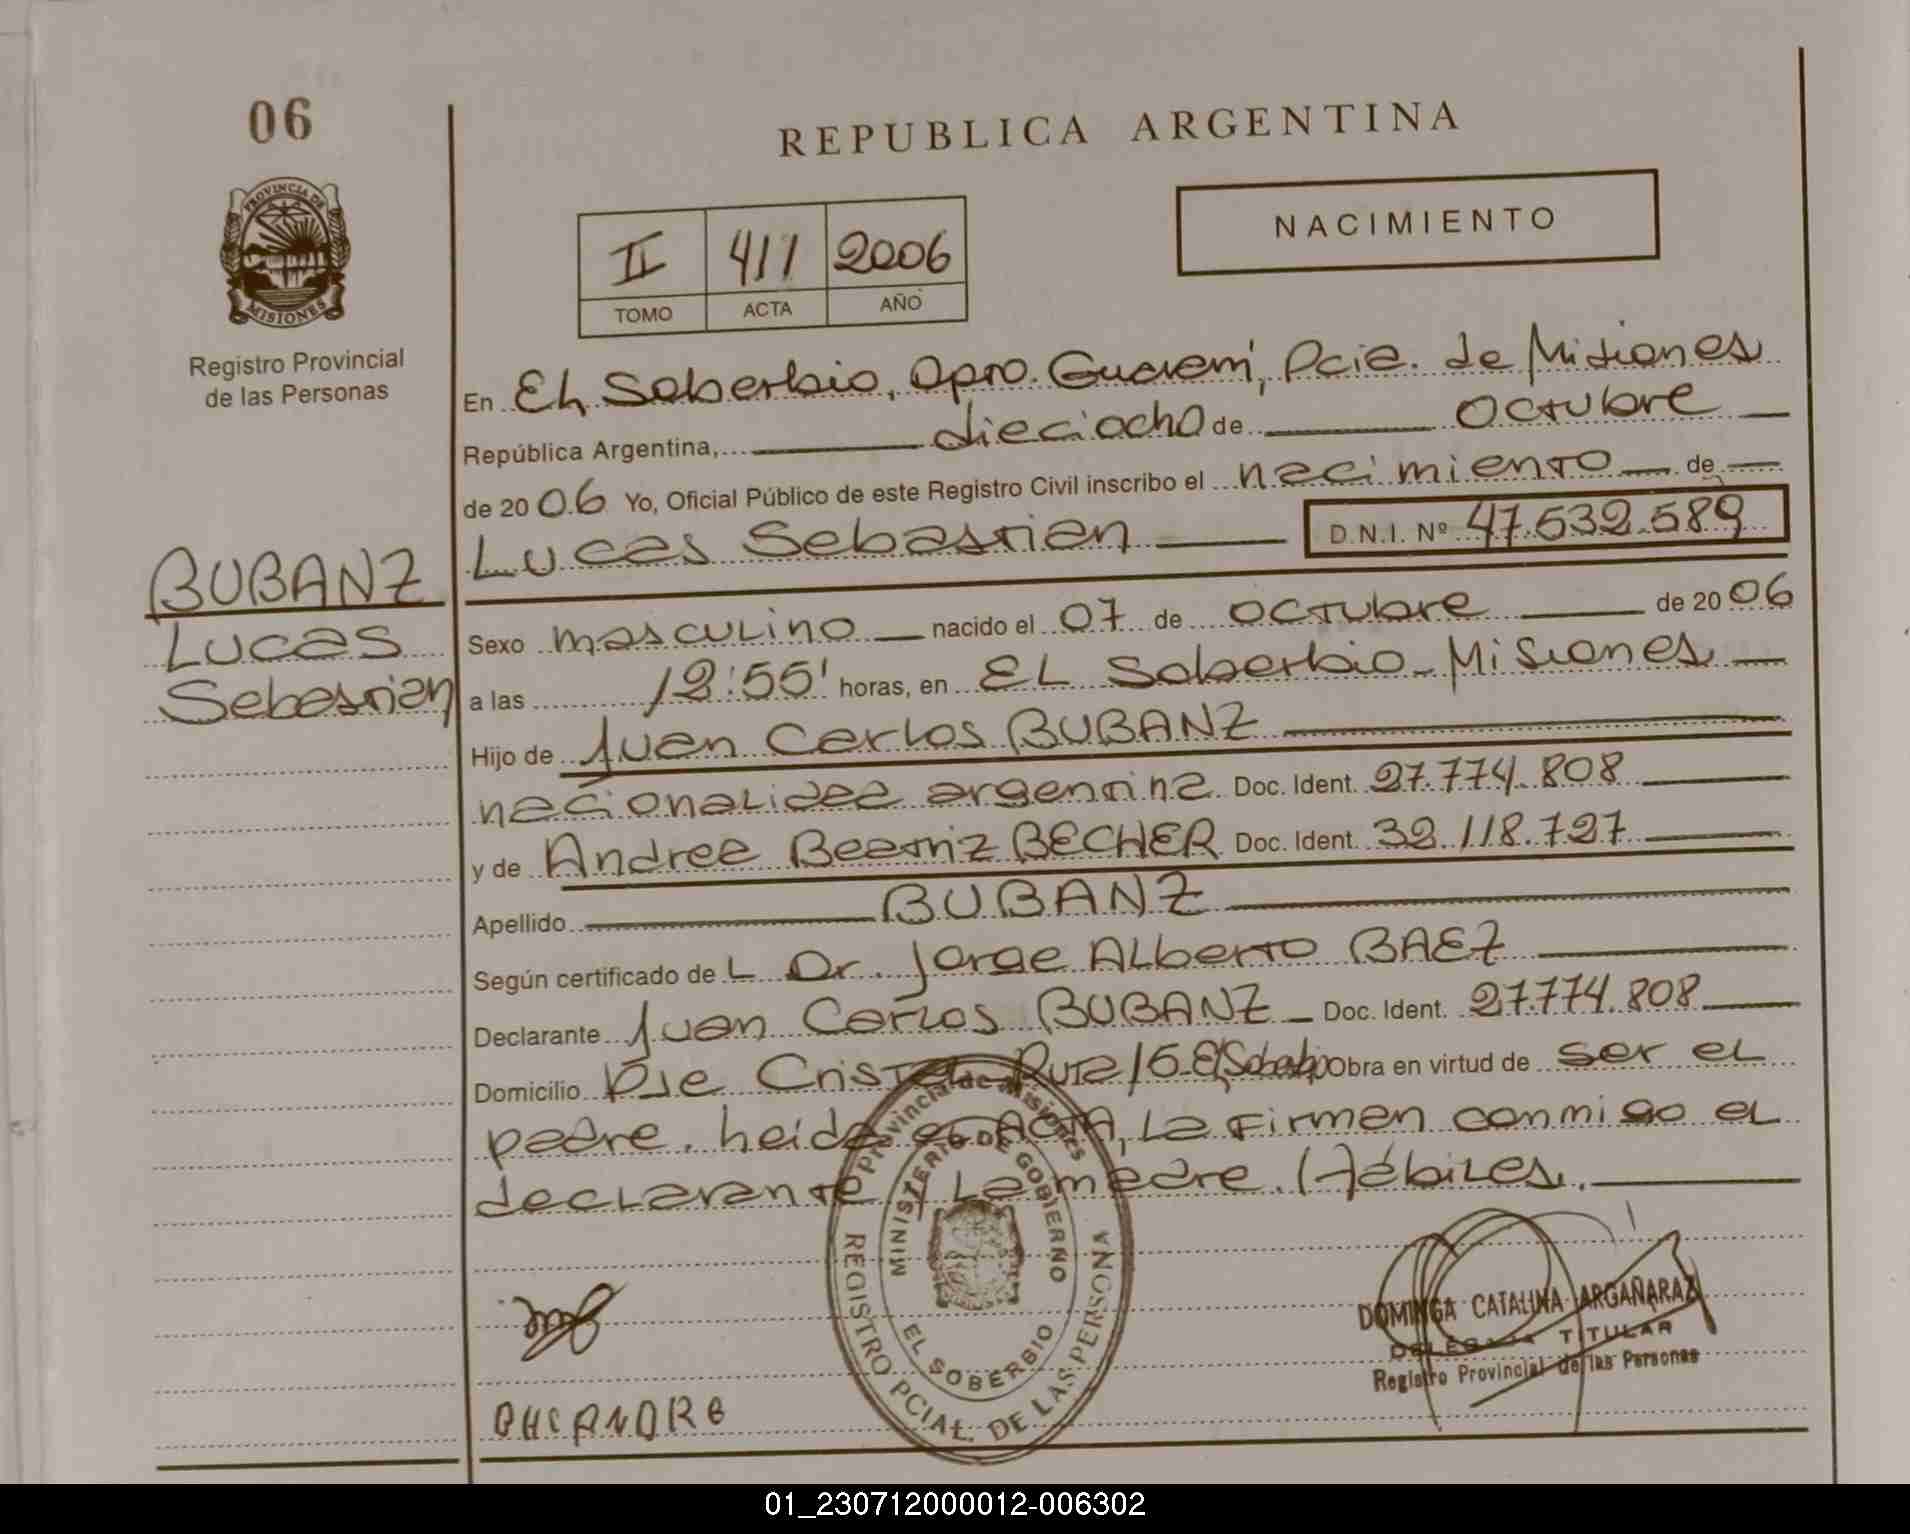 06
REPUBLICA ARGENTINA
PROVINCIA DE
MISIONES
Registro Provincial
de las Personas
II 411 2006
TOMO ACTA AÑO
NACIMIENTO
En EL Soberbio, Dpto. Guaraní, Pcia. de Misiones
República Argentina, dieciocho de octubre
de 2006 Yo, Oficial Público de este Registro Civil inscribo el nacimiento de
Lucas Sebastian D.N.I. Nº 47.532.589
BUBANZ
Lucas
Sebastian
Sexo masculino nacido el 07 de octubre de 2006
a las 12:55' horas, en EL Soberbio - Misiones
Hijo de Juan Carlos BUBANZ
nacionalidad argentina Doc. Ident. 27.774.808
y de Andrea Beatriz BECHER Doc. Ident. 32.118.727
Apellido BUBANZ
Según certificado del Dr. Jorge ALberto BAEZ
Declarante Juan Carlos BUBANZ Doc. Ident. 27.774.808
Domicilio Pje Cristal Ruta 15 El Soberbio Obra en virtud de ser el
padre. Leida el ACTA, La Firman conmigo el
declarante y La madre. Hábiles.
Provincia de Misiones
MINISTERIO DE GOBIERNO
EL SOBERBIO
REGISTRO PCIAL. DE LAS PERSONA
DOMINGA CATALINA ARGAÑARAZ
DELEGADA TITULAR
Registro Provincial de las Personas
01_230712000012-006302